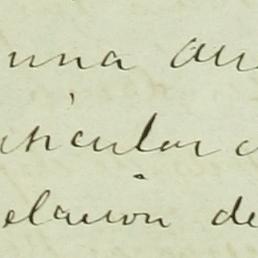 una au
ticular c
elacion de